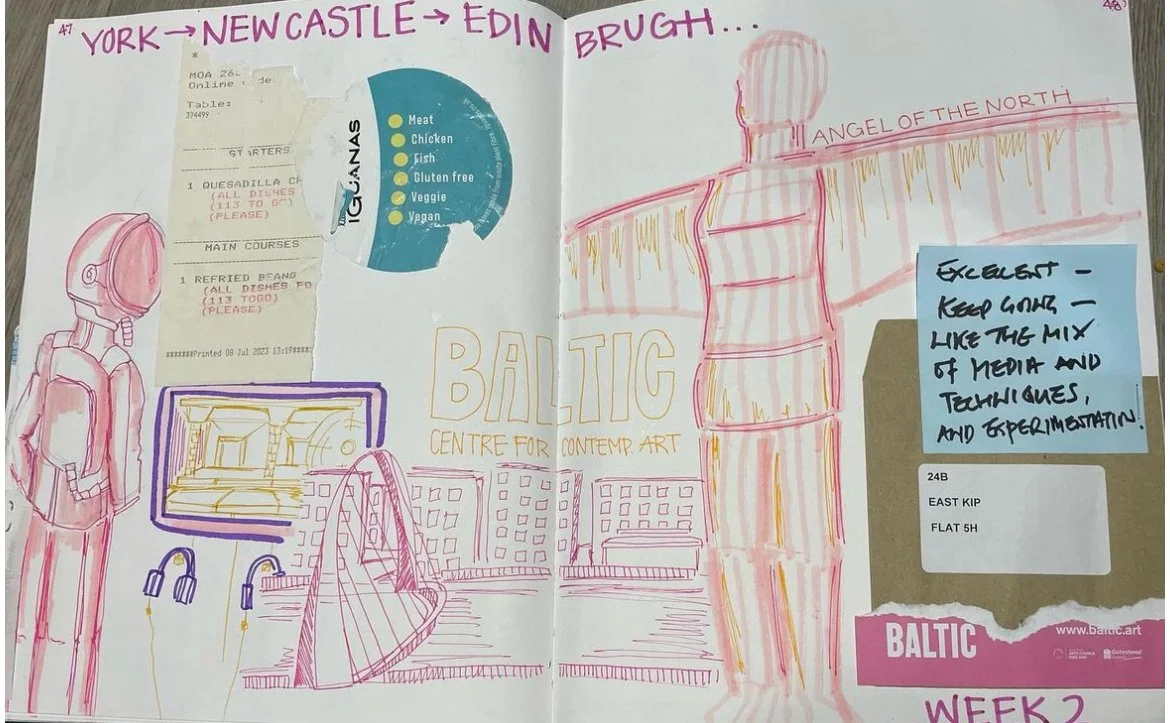 47
YORK → NEWCASTLE → EDINBRUGH...
*
MOA 26
Online de
Table:
374499
STARTERS
1 QUESADILLA CH
(ALL DISHES
(113 TO G
(PLEASE)
MAIN COURSES
1 REFRIED BEANS
(ALL DISHES FO
(113 TOGO)
(PLEASE)
#######Printed 08 Jul 2023 13:19####
IGUANAS
Meat
Chicken
Fish
Gluten free
Veggie
Vegan
ANGEL OF THE NORTH
BALTIC
CENTRE FOR CONTEMP. ART
EXCELLENT –
KEEP GOING –
LIKE THE MIX
OF MEDIA AND
TECHNIQUES,
AND EXPERIMENTATIN!
24B
EAST KIP
FLAT 5H
BALTIC
www.baltic.art
WEEK 2